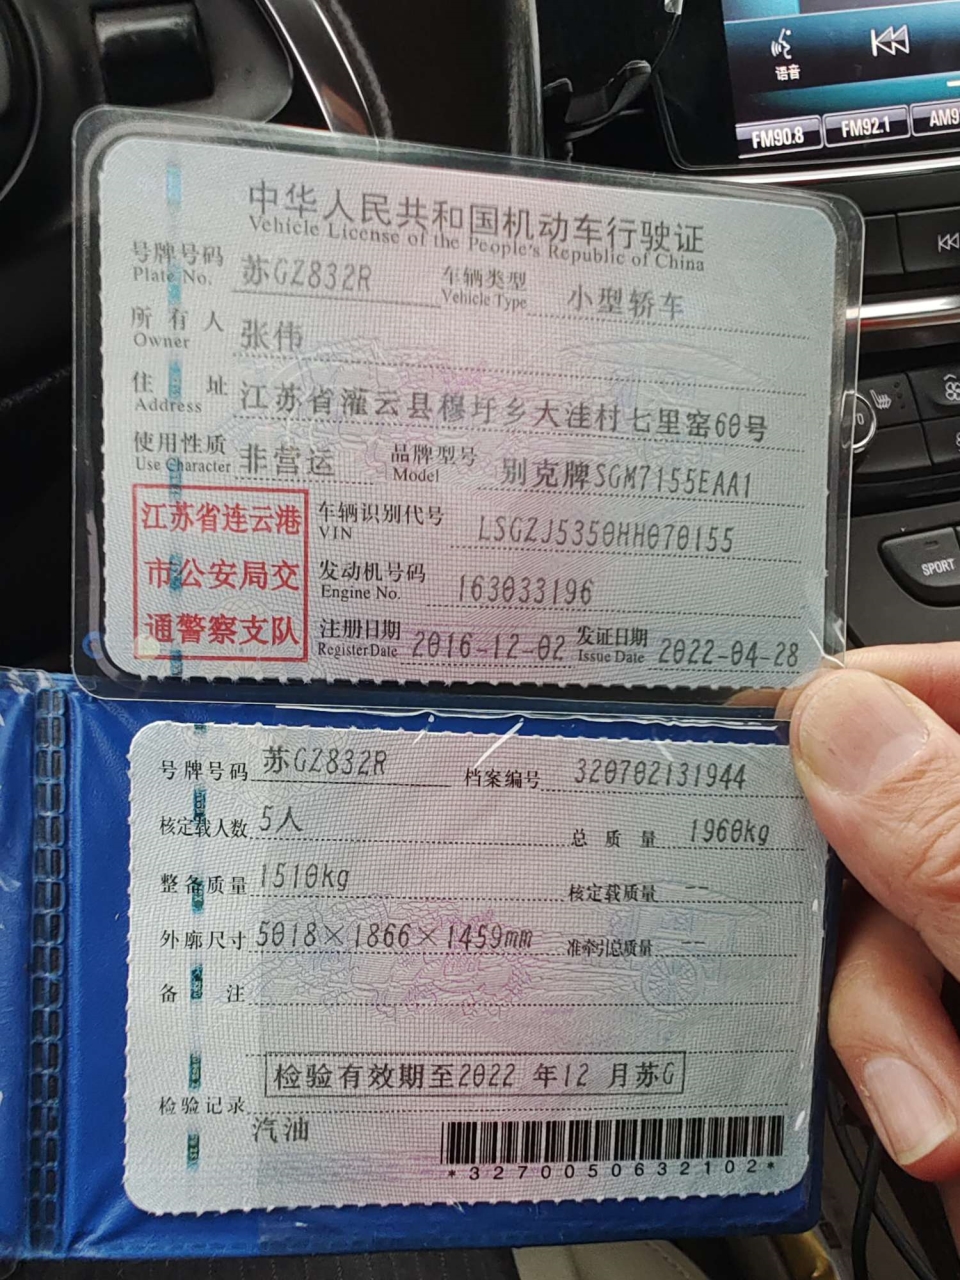 语音
FM90.8 FM92.1 AM9
SPORT
中华人民共和国机动车行驶证
Vehicle License of the People's Republic of China
号牌号码 Plate No. 苏GZ832R 车辆类型 Vehicle Type 小型轿车
所有人 Owner 张伟
住址 Address 江苏省灌云县穆圩乡大洼村七里窑60号
使用性质 Use Character 非营运 品牌型号 Model 别克牌SGM7155EAA1
江苏省连云港
市公安局交
通警察支队
车辆识别代号 VIN LSGZJ5350HH070155
发动机号码 Engine No. 163033196
注册日期 Register Date 2016-12-02 发证日期 Issue Date 2022-04-28
号牌号码 苏GZ832R 档案编号 320702131944
核定载人数 5人 总质量 1960kg
整备质量 1510kg 核定载质量 --
外廓尺寸 5018×1866×1459mm 准牵引总质量 --
备注
检验有效期至2022 年12 月苏G
检验记录
汽油
*3270050632102*